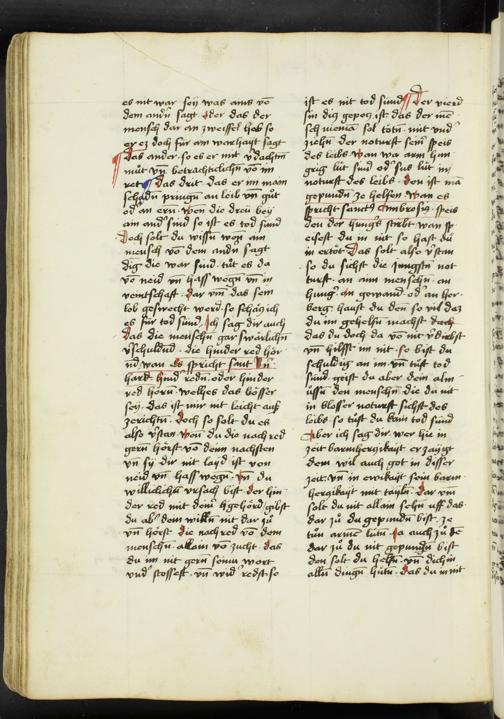 es nit war sey was ains võ
dem andn̄ sagt Oder das der
mensch dar an zweiffel hab so
er ez doch fur ain warhayt sagt
Das ander so es er mit vdachtm̄
mut vn̄ betrachticlichn̄ võ im
ret Das drit das er im main
schadn̄ pringn̄ an leib vn̄ gut
od an ern Wen die dreu bey
ain and sind so ist es tod sund
Doch solt du wissn̄ wan ain
mensch võ dem andn̄ sagt
dig die war sind tut es da
võ neid vn̄ hass wegn̄ vn̄ in
veintschaft Dar vm̄ das sein
lob geswecht werd so schacz ich
es fur tod sund Ich sag dir auch
das die menschn̄ gar swarlichn̄
vschuldnd die hinder red hor
nd wan es spricht sant
hart sind redn̄ oder hinder
red horn̄ welhes das bosser
sey das ist mir nit leicht auß
zerichtn̄ Doch so solt du es
also vstan Wen du die nach red
gern horst võ deim nachsten
vn̄ sy dir nit layd ist von
neid vn̄ hass wegn̄ Vn̄ du
williclichn̄ vrsach bist der hin
der red mit deim zuhorn gibst
du ab dein willn̄ nit dar zu
vn̄ horst die nach red võ dem
menschn̄ allain võ zucht das
du im nit gern seinu wort
vnd stossest vn̄ wid redst so
ist es nit tod sund Der vierd
sin dig gepog ist das der mē
sch nieman sol totn̄ mit vnd
ziehn̄ der noturft sein speis
des leibs Wan war arm̄ hun
grig lut sind ods lut in
noturft des leibs den ist mā
gepundn̄ ze helfen Wan es
spricht sanctus Ambrosius speis
den der hungs stirbt wan sp
eisest du in nit so hast du
in ertot Das solt also vstan
so du sichst die jungstn̄ not
turft an ain menschn̄ an
hung an gewand od an her
berg haust du den so vil daz
du im gehelfn̄ machst doch
das du doch da võ nit vdirbst
vn̄ hilfst im nit so bist du
schuldig an im vn̄ tust tod
sund geist du aber dein alm
ussn̄ den menschn̄ die du nit
in blosser noturft sichst des
leibs so tust du kain tod sund
Aber ich sag dir wer hie in
zeit barmhergikayt erzaygt
dem wil auch got in disser
zeit vn̄ in ewikayt sein barm
hergikayt mit tayln̄ Dar vm̄
solt du nit allain sehn̄ auff das
dar zu du gepundn̄ bist ze
tun armē lutn̄ Ja auch zu dē
dar zu du nit gepundn̄ bist
den solt du helfn̄ vn̄ dich in
alln̄ dingn̄ hutn̄ das du in nit